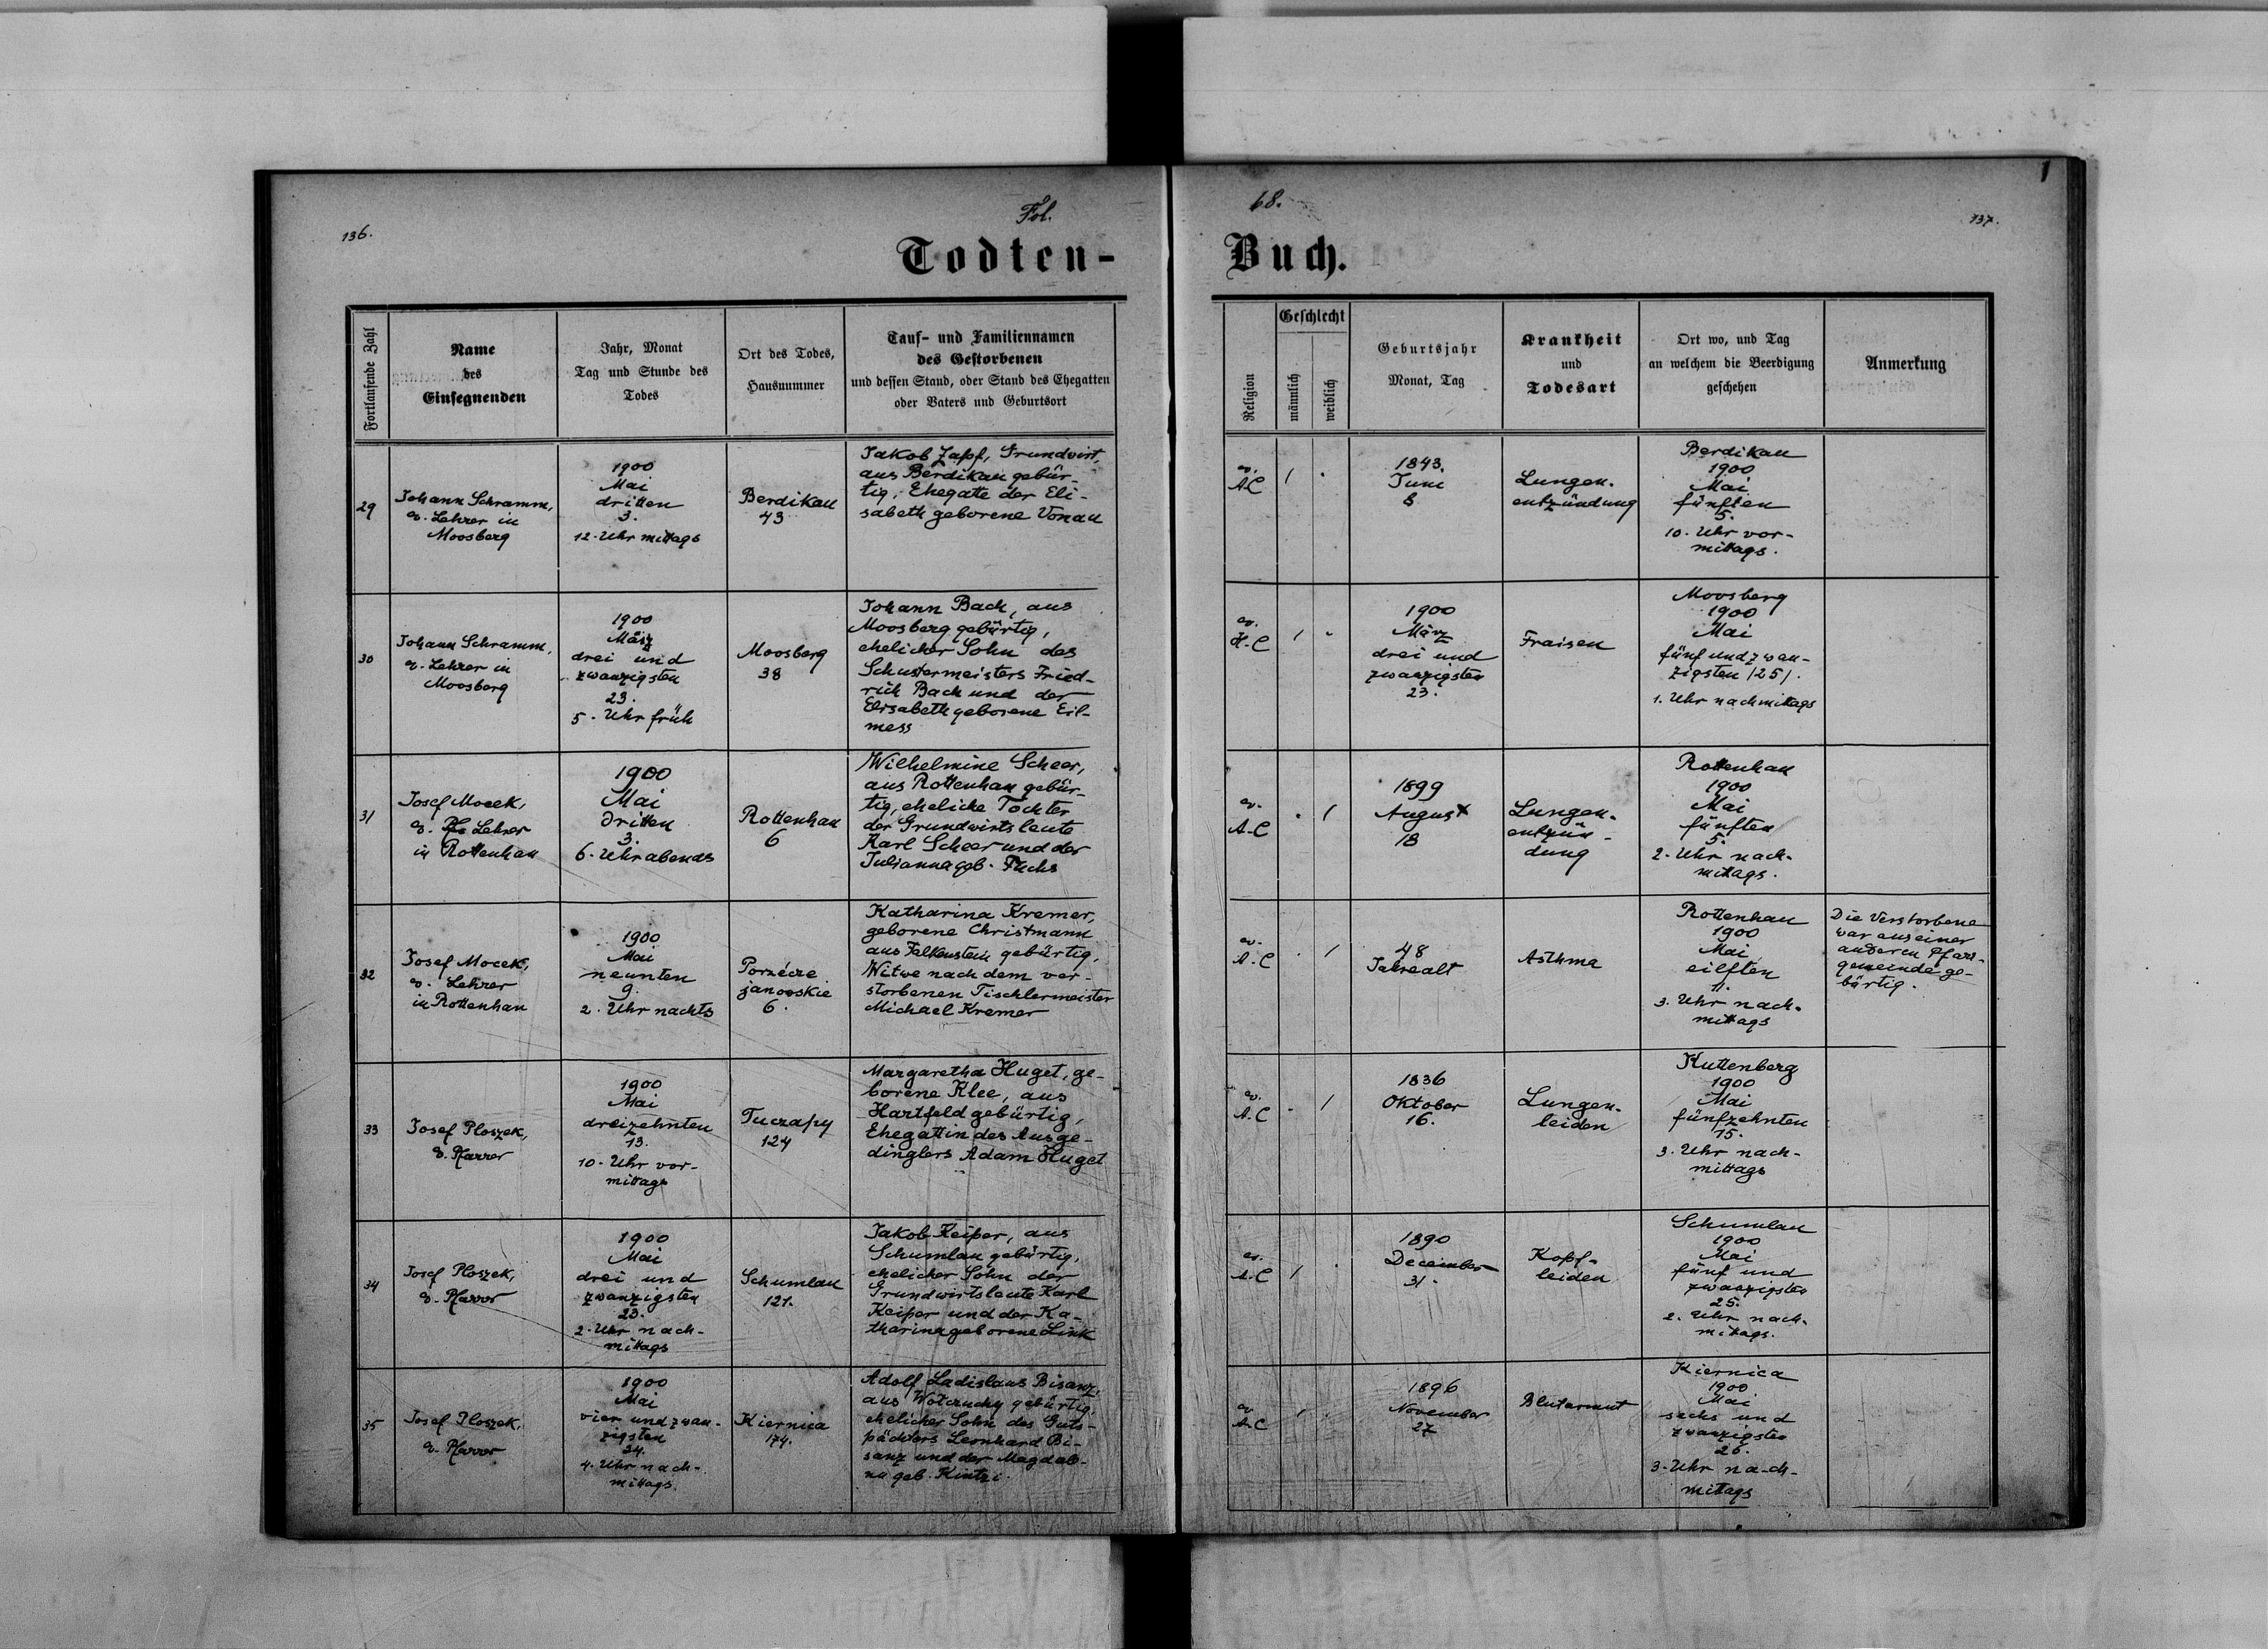 136.
Fol.
68.
137.
Todten-
Buch.
Fortlaufende Zahl
Name
des
Einsegnenden
Jahr, Monat
Tag und Stunde des
Todes
Ort des Todes,
Hausnummer
Tauf- und Familiennamen
des Gestorbenen
und dessen Stand, oder Stand des Ehegatten
oder Vaters und Geburtsort
Religion
Geschlecht
männlich
weiblich
Geburtsjahr
Monat, Tag
Krankheit
und
Todesart
Ort wo, und Tag
an welchem die Beerdigung
geschehen
Anmerkung
29
Johann Schramm,
ev. Lehrer in
Moosberg
1900
Mai
dritten
3.
12. Uhr mittags
Berdikau
43
Jakob Zapf, Grundwirt,
aus Berdikau gebür-
tig, Ehegatte der Eli-
sabeth geborene Vonau
ev.
A.C
1843.
Juni
8
Lungen-
entzündung
Berdikau
1900
Mai
fünften
5.
10. Uhr vor-
mittags.
30
Johann Schramm,
ev. Lehrer in
Moosberg
1900
März
drei und
zwanzigsten
23.
5. Uhr früh
Moosberg
38
Johann Bach, aus
Moosberg gebürtig,
ehelicher Sohn des
Schustermeisters Fried-
rich Bach und der
Elisabeth geborene Eil-
mess
ev.
H.C
1900
März
drei und
zwanzigsten
23.
Fraisen
Moosberg
1900
Mai
fünf und zwan-
zigsten /25/.
1. Uhr nachmittags
31
Josef Mocek,
ev. Lehrer
in Rottenhan
1900
Mai
dritten
3.
6. Uhr abends
Rottenhan
6
Wilhelmine Scheer,
aus Rottenhan gebür-
tig, eheliche Tochter
der Grundwirtsleute
Karl Scheer und der
Julianna geb. Fuchs
ev.
A.C
1899
August
18
Lungen-
entzün-
dung
Rottenhan
1900
Mai
fünften
5.
2. Uhr nach-
mittags.
32
Josef Mocek,
ev. Lehrer
in Rottenhan
1900
Mai
neunten
9.
2. Uhr nachts
Porzécze
janowskie
6.
Katharina Kremer,
geborene Christmann
aus Falkenstein gebürtig,
Witwe nach dem ver-
storbenen Tischlermeister
Michael Kremer
ev.
A.C
48
Jahre alt
Asthma
Rottenhan
1900
Mai
eilften
11.
3. Uhr nach-
mittags
Die Verstorbene
war aus einer
anderen Pfarr-
gemeinde ge-
bürtig.
33
Josef Ploszek,
ev. Pfarrer
1900
Mai
dreizehnten
13.
10. Uhr vor-
mittags
Tuczapy
124
Margaretha Huget, ge-
borene Klee, aus
Hartfeld gebürtig,
Ehegattin des Ausge-
dinglers Adam Huget
ev.
A.C
1836
Oktober
16.
Lungen-
leiden
Kuttenberg
1900
Mai
fünfzehnten
15.
3. Uhr nach-
mittags
34
Josef Ploszek,
ev. Pfarrer
1900
Mai
drei und
zwanzigsten
23.
2. Uhr nach-
mittags
Schumlau
121.
Jakob Keiper, aus
Schumlau gebürtig,
ehelicher Sohn der
Grundwirtsleute Karl
Keiper und der Ka-
tharina geborene Link
ev.
A.C
1890
December
31.
Kopf-
leiden
Schumlau
1900
Mai
fünf und
zwanzigsten
25.
2. Uhr nach-
mittags.
35
Josef Ploszek,
ev. Pfarrer
1900
Mai
vier und zwan-
zigsten
24.
4. Uhr nach-
mittags.
Kiernica
174.
Adolf Ladislaus Bisanz,
aus Wołczuchy gebürtig,
ehelicher Sohn des Guts-
pächters Leonhard Bi-
sanz und der Magdale-
na geb. Kintzi.
ev.
A.C
1896
November
27
Blutarmut
Kiernica
1900
Mai
sechs und
zwanzigsten
26.
3. Uhr nach-
mittags